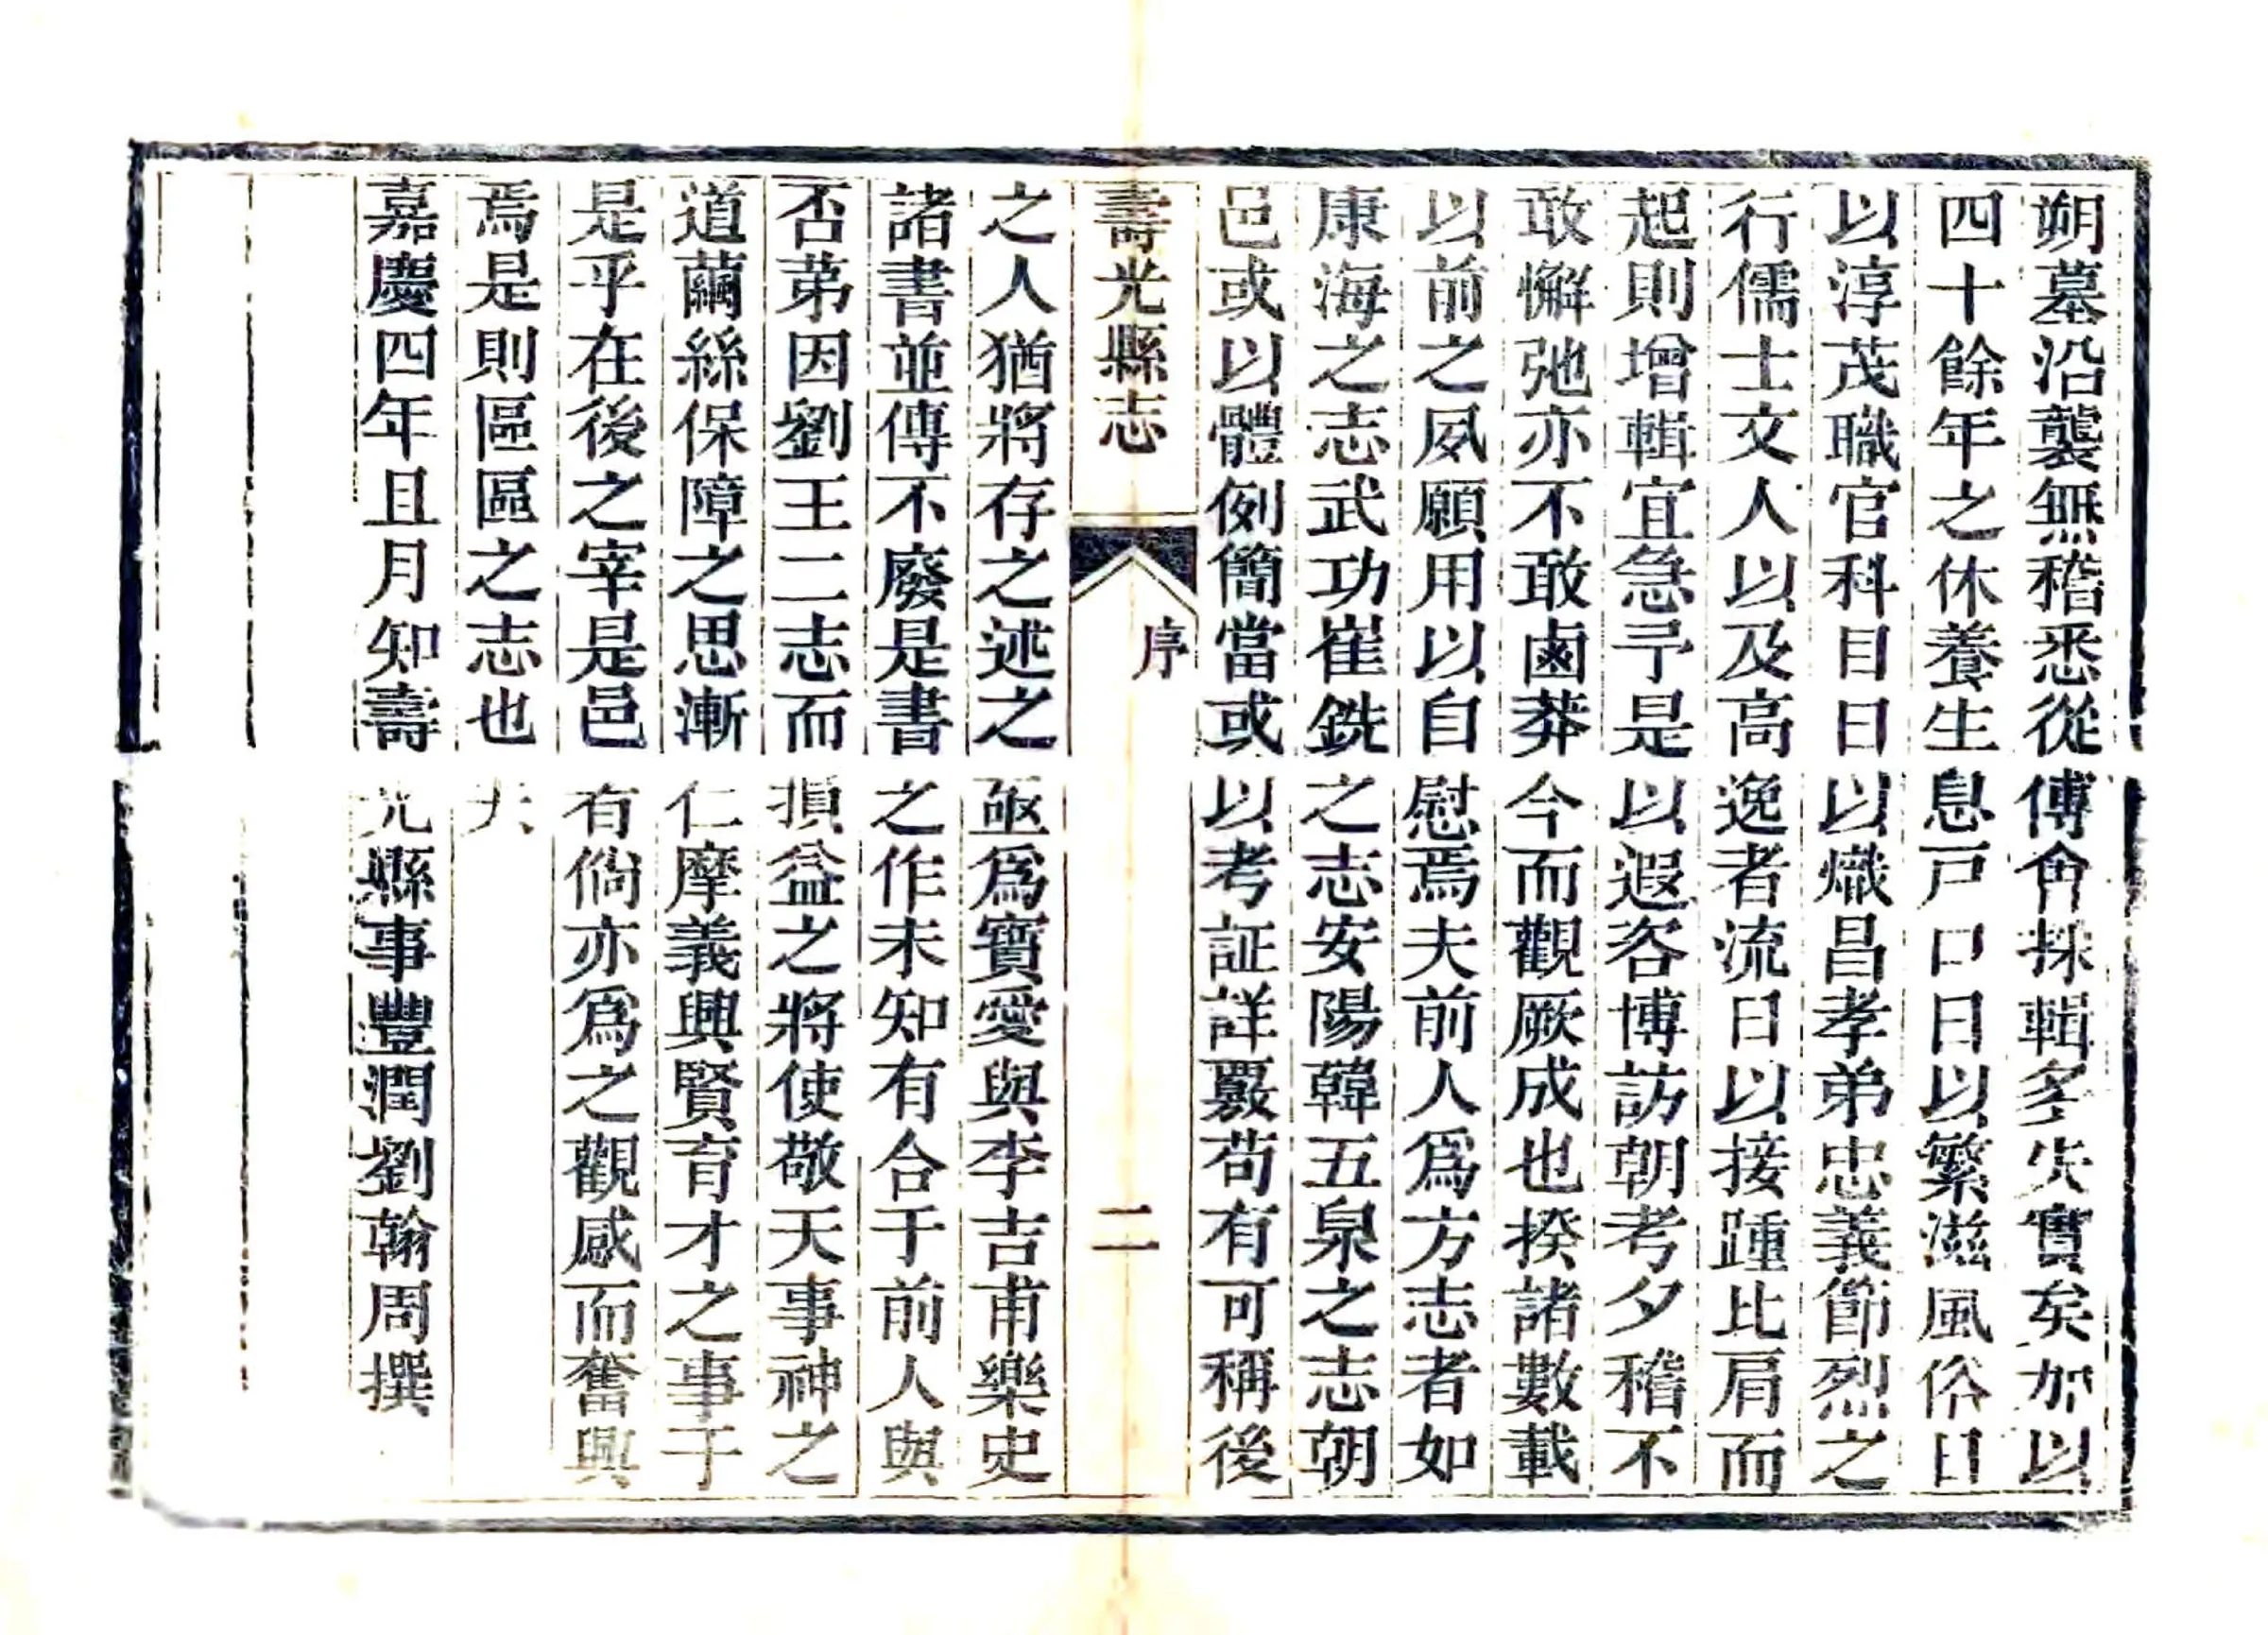 朔墓沿襲無稽悉從傅會採輯多失實矣加以
四十餘年之休養生息戸口日以繁滋風俗日
以淳茂職官科目日以熾昌孝弟忠義節烈之
行儒士文人以及高逸者流日以接踵比肩而
起則增輯宜急予是以遐咨博訪朝考夕稽不
敢懈弛亦不敢鹵莽今而觀厥成也揆諸數載
以前之夙願用以自慰焉夫前人爲方志者如
康海之志武功崔銑之志安陽韓五泉之志朝
邑或以體例簡當或以考証詳覈苟有可稱後
壽光縣志
序
二
之人猶將存之述之亟爲寶愛與李吉甫樂史
諸書並傳不廢是書之作未知有合于前人與
否苐因劉王二志而損益之將使敬天事神之
道繭絲保障之思漸仁摩義興賢育才之事于
是乎在後之宰是邑有倘亦爲之觀感而奮興
焉是則區區之志也夫
嘉慶四年且月知壽光縣事豐潤劉翰周撰